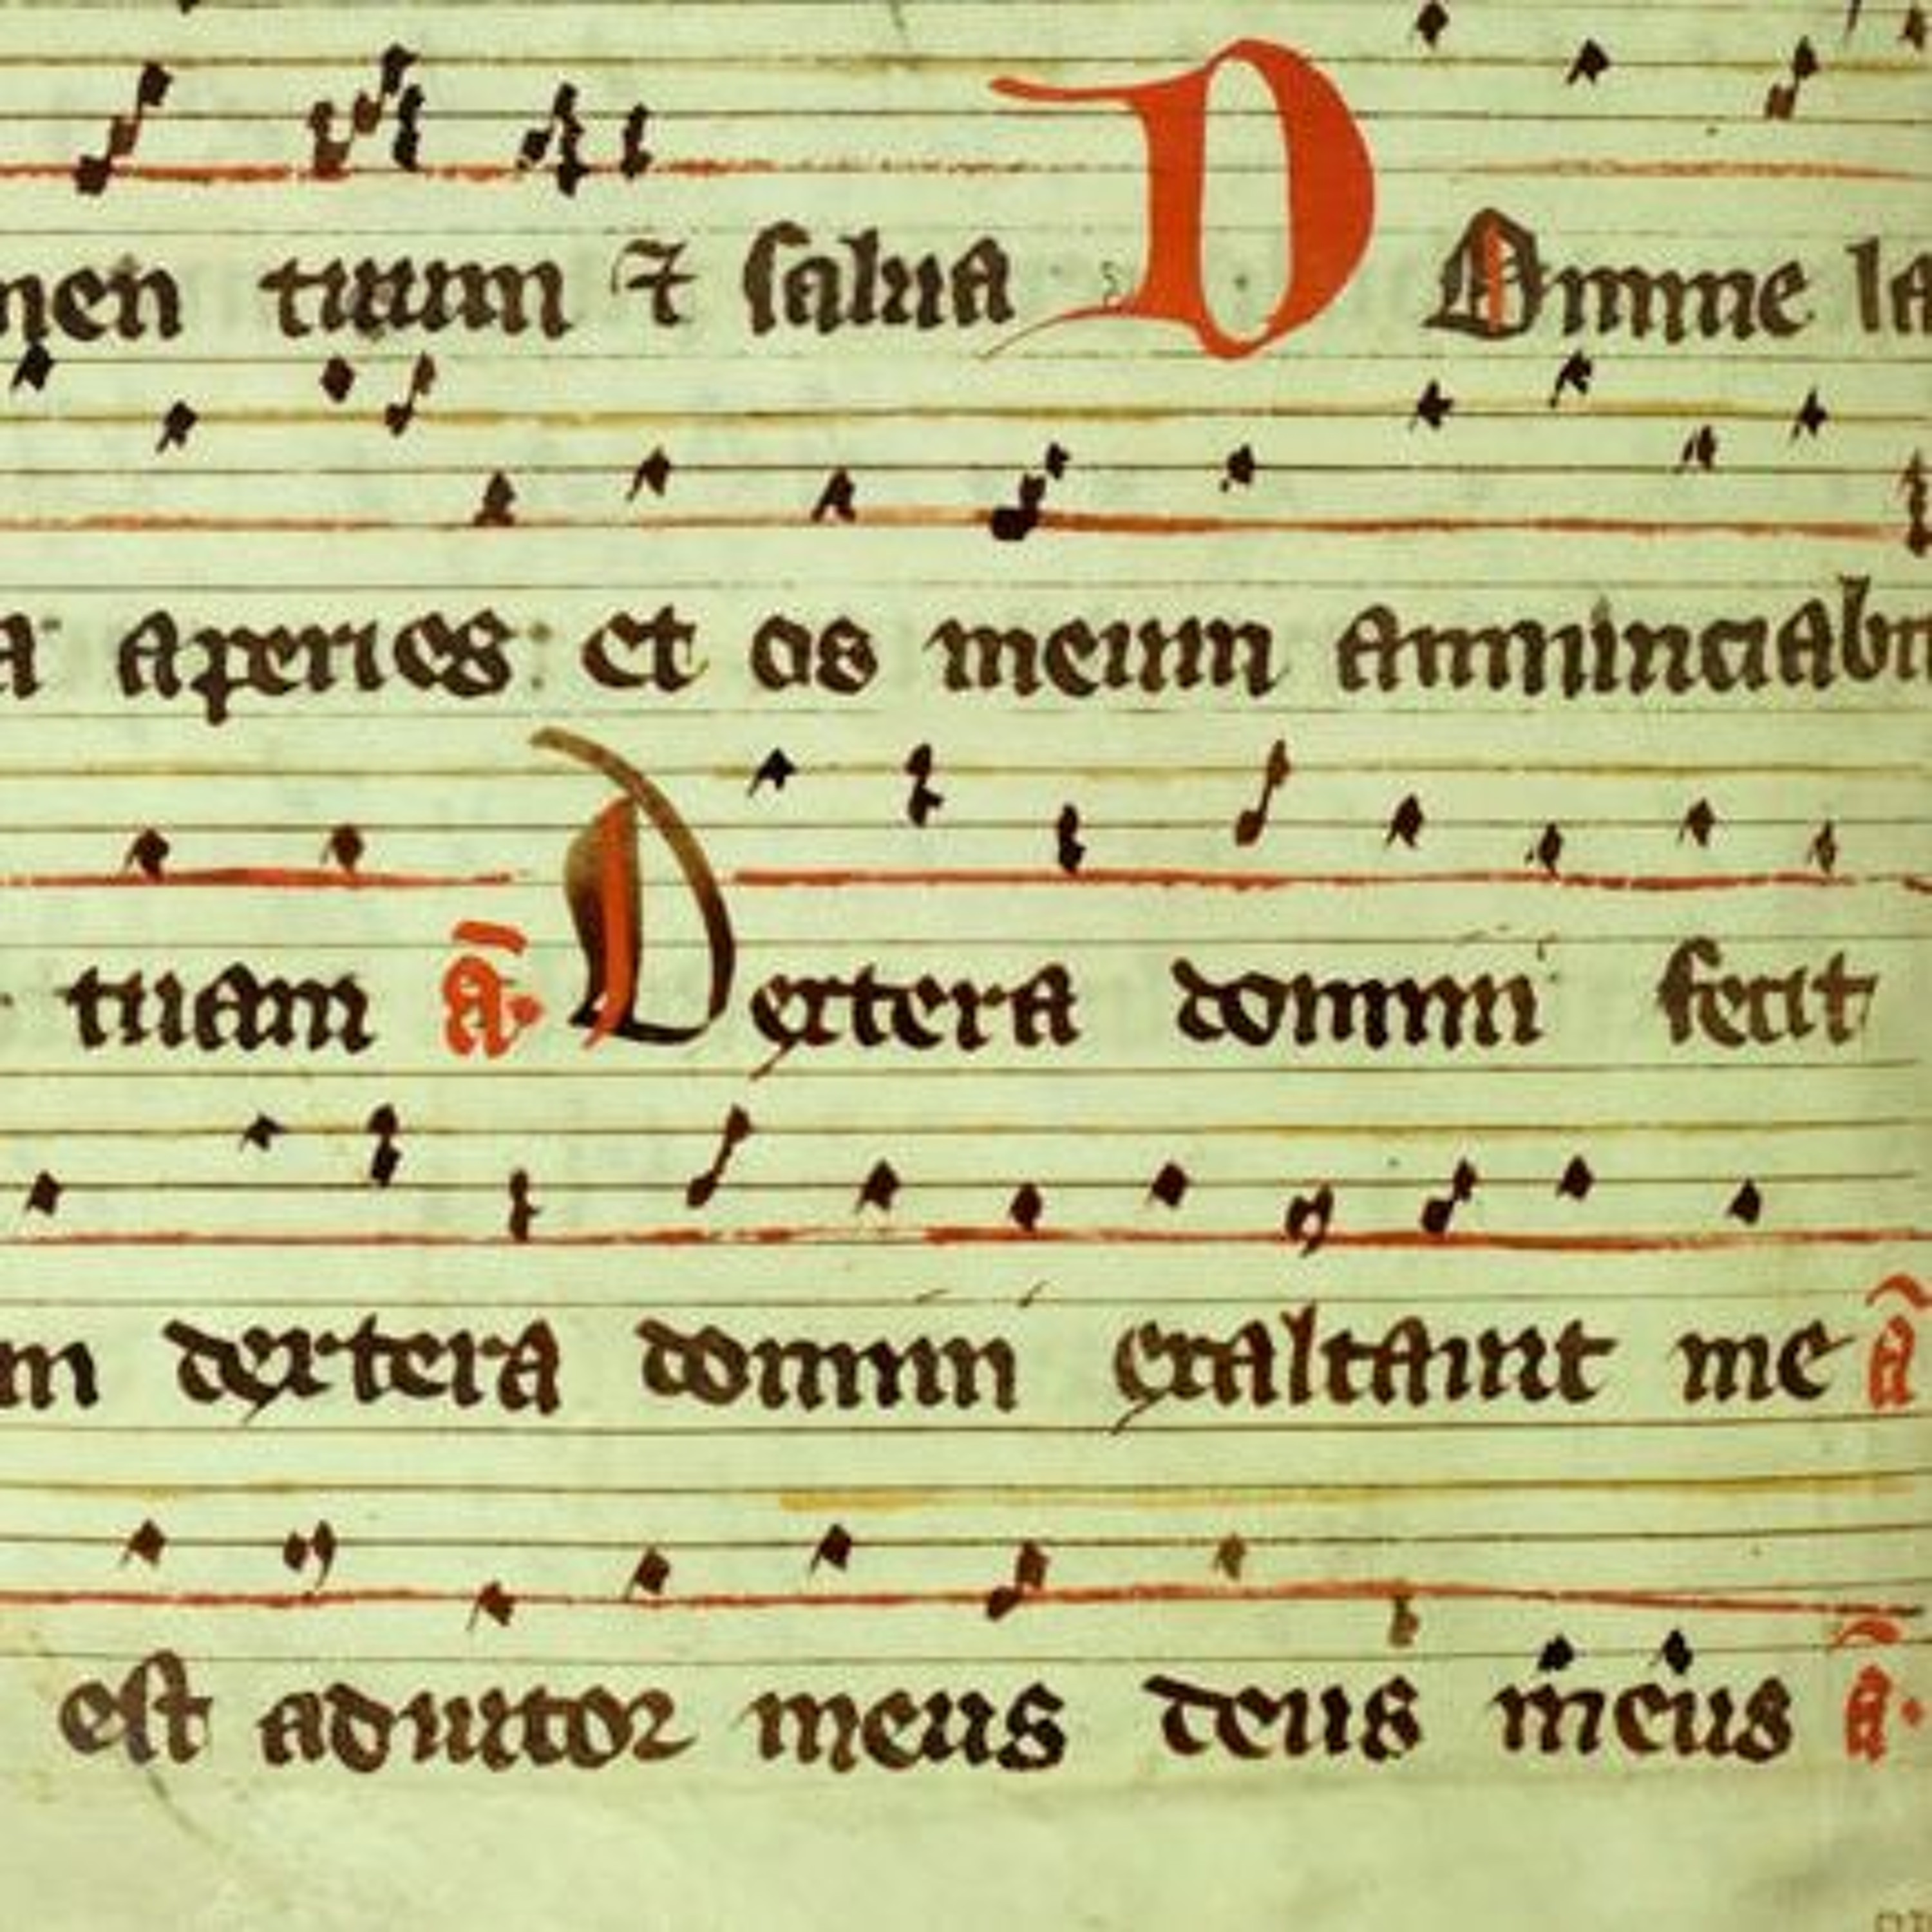 men tuum ⁊ salua D Omine la
a aperies: et os meum annunciabit
tuam ā. Dextera domini fecit
m dextera domini exaltauit me ā
est adiutor meus deus meus ā.